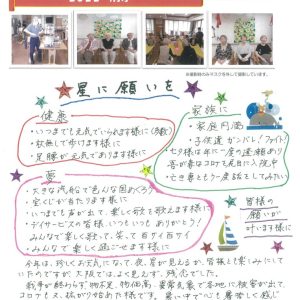 ※撮影時のみマスクを外して撮影しています。
星に願いを
健康
・いつまでも元気でいられます様に(多数)
・杖無しで歩けます様に
・足腰が元気であります様に
家族に
・家庭円満
・子供達 ガンバレ!ファイト!
・七夕様は年に一度の逢瀬あり
吾が妻はコロナで死ねまに入院中
亡き妻ともう一度話をしてみたい
夢
・大きな汽船で色んな国めぐろう
・宝くじが当たります様に
・いつまでも声が出て、楽しく歌を歌えます様に
・デイサービスの皆様 いつもいつもありがとう!
みんなで楽しく歌って、笑って百才百サイ
・みんなで楽しく過ごせます様に
皆様の
願いが
叶います様に
今年は、珍しくお天気になって、夜、星が見えるか、皆様と楽しみにして
いたのですが、大阪では、よく見えず、残念でした。
戦争が終わらず、物不足、物価高、豪雪と色々で各地に被害が出て